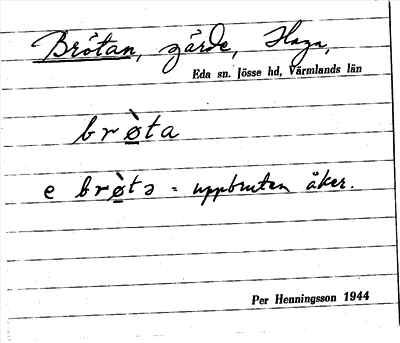 Brötan, gärde, Haga,
Eda sn. Jösse hd, Värmlands län
brø̀ta
e brø̀tə = uppbruten åker.
Per Henningsson 1944